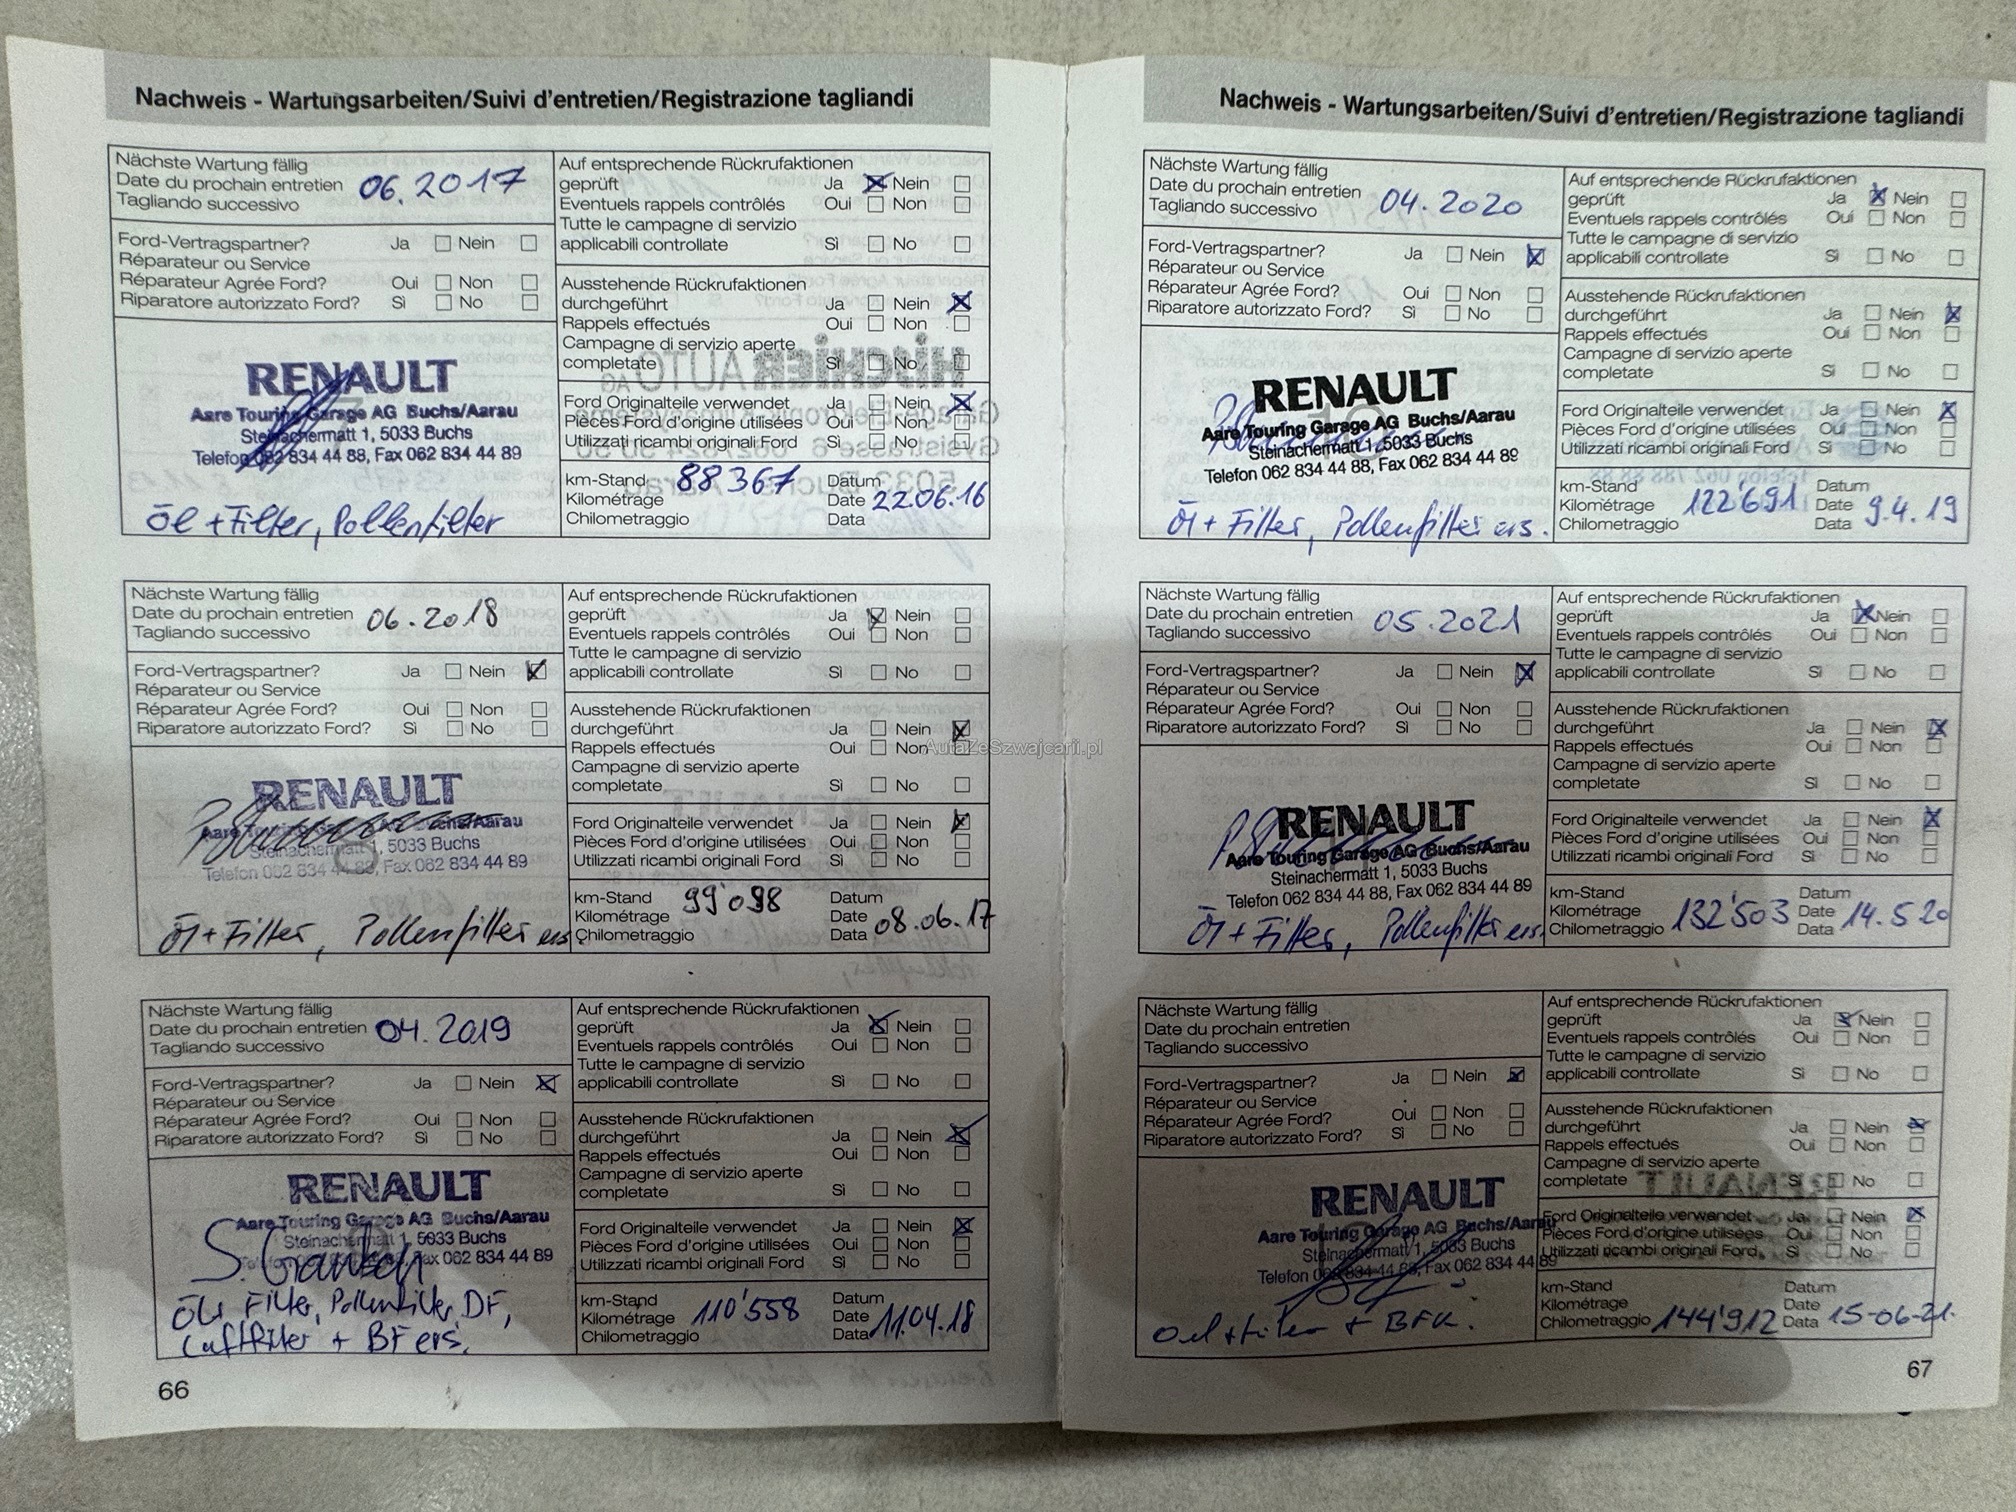 Nachweis - Wartungsarbeiten/Suivi d'entretien/Registrazione tagliandi
Nächste Wartung fällig
Date du prochain entretien 06.2017
Tagliando successivo
Ford-Vertragspartner? Ja Nein
Réparateur ou Service
Réparateur Agrée Ford? Oui Non
Riparatore autorizzato Ford? Sì No
RENAULT
Aare Touring Garage AG Buchs/Aarau
Steinachermatt 1, 5033 Buchs
Telefon 062 834 44 88, Fax 062 834 44 89
Öl + Filter, Pollenfilter
Auf entsprechende Rückrufaktionen
geprüft Ja Nein
Eventuels rappels contrôlés Oui Non
Tutte le campagne di servizio
applicabili controllate Sì No
Ausstehende Rückrufaktionen
durchgeführt Ja Nein
Rappels effectués Oui Non
Campagne di servizio aperte
completate Sì No
Ford Originalteile verwendet Ja Nein
Pièces Ford d'origine utilisées Oui Non
Utilizzati ricambi originali Ford Sì No
km-Stand 88367 Datum
Kilométrage Date 22.06.16
Chilometraggio Data
Nächste Wartung fällig
Date du prochain entretien 06.2018
Tagliando successivo
Ford-Vertragspartner? Ja Nein
Réparateur ou Service
Réparateur Agrée Ford? Oui Non
Riparatore autorizzato Ford? Sì No
RENAULT
Aare Touring Garage AG Buchs/Aarau
Steinachermatt 1, 5033 Buchs
Telefon 062 834 44 88, Fax 062 834 44 89
Öl + Filter, Pollenfilter ers.
Auf entsprechende Rückrufaktionen
geprüft Ja Nein
Eventuels rappels contrôlés Oui Non
Tutte le campagne di servizio
applicabili controllate Sì No
Ausstehende Rückrufaktionen
durchgeführt Ja Nein
Rappels effectués Oui Non
Campagne di servizio aperte
completate Sì No
Ford Originalteile verwendet Ja Nein
Pièces Ford d'origine utilisées Oui Non
Utilizzati ricambi originali Ford Sì No
km-Stand 99'098 Datum
Kilométrage Date 08.06.17
Chilometraggio Data
Nächste Wartung fällig
Date du prochain entretien 04.2019
Tagliando successivo
Ford-Vertragspartner? Ja Nein
Réparateur ou Service
Réparateur Agrée Ford? Oui Non
Riparatore autorizzato Ford? Sì No
RENAULT
Aare Touring Garage AG Buchs/Aarau
Steinachermatt 1, 5033 Buchs
Telefon 062 834 44 88, Fax 062 834 44 89
Filter, Pollenfilter, DF,
Luftfilter + BF ers.
Auf entsprechende Rückrufaktionen
geprüft Ja Nein
Eventuels rappels contrôlés Oui Non
Tutte le campagne di servizio
applicabili controllate Sì No
Ausstehende Rückrufaktionen
durchgeführt Ja Nein
Rappels effectués Oui Non
Campagne di servizio aperte
completate Sì No
Ford Originalteile verwendet Ja Nein
Pièces Ford d'origine utilisées Oui Non
Utilizzati ricambi originali Ford Sì No
km-Stand Datum
Kilométrage 110'558 Date
Chilometraggio Data 11.04.18
66
Nachweis - Wartungsarbeiten/Suivi d'entretien/Registrazione tagliandi
Nächste Wartung fällig
Date du prochain entretien 04.2020
Tagliando successivo
Ford-Vertragspartner? Ja Nein
Réparateur ou Service
Réparateur Agrée Ford? Oui Non
Riparatore autorizzato Ford? Sì No
RENAULT
Aare Touring Garage AG Buchs/Aarau
Steinachermatt 1, 5033 Buchs
Telefon 062 834 44 88, Fax 062 834 44 89
Öl + Filter, Pollenfilter ers.
Auf entsprechende Rückrufaktionen
geprüft Ja Nein
Eventuels rappels contrôlés Oui Non
Tutte le campagne di servizio
applicabili controllate Sì No
Ausstehende Rückrufaktionen
durchgeführt Ja Nein
Rappels effectués Oui Non
Campagne di servizio aperte
completate Sì No
Ford Originalteile verwendet Ja Nein
Pièces Ford d'origine utilisées Oui Non
Utilizzati ricambi originali Ford Sì No
km-Stand Datum
Kilométrage 122'691 Date 9.4.19
Chilometraggio Data
Nächste Wartung fällig
Date du prochain entretien 05.2021
Tagliando successivo
Ford-Vertragspartner? Ja Nein
Réparateur ou Service
Réparateur Agrée Ford? Oui Non
Riparatore autorizzato Ford? Sì No
RENAULT
Aare Touring Garage AG Buchs/Aarau
Steinachermatt 1, 5033 Buchs
Telefon 062 834 44 88, Fax 062 834 44 89
Öl + Filter, Pollenfilter ers.
Auf entsprechende Rückrufaktionen
geprüft Ja Nein
Eventuels rappels contrôlés Oui Non
Tutte le campagne di servizio
applicabili controllate Sì No
Ausstehende Rückrufaktionen
durchgeführt Ja Nein
Rappels effectués Oui Non
Campagne di servizio aperte
completate Sì No
Ford Originalteile verwendet Ja Nein
Pièces Ford d'origine utilisées Oui Non
Utilizzati ricambi originali Ford Sì No
km-Stand Datum
Kilométrage 132'503 Date 14.5.20
Chilometraggio Data
Nächste Wartung fällig
Date du prochain entretien
Tagliando successivo
Ford-Vertragspartner? Ja Nein
Réparateur ou Service
Réparateur Agrée Ford? Oui Non
Riparatore autorizzato Ford? Sì No
RENAULT
Aare Touring Garage AG Buchs/Aarau
Steinachermatt 1, 5033 Buchs
Telefon 062 834 44 88, Fax 062 834 44 89
Oel + Filter + BFK.
Auf entsprechende Rückrufaktionen
geprüft Ja Nein
Eventuels rappels contrôlés Oui Non
Tutte le campagne di servizio
applicabili controllate Sì No
Ausstehende Rückrufaktionen
durchgeführt Ja Nein
Rappels effectués Oui Non
Campagne di servizio aperte
completate Sì No
Ford Originalteile verwendet Ja Nein
Pièces Ford d'origine utilisées Oui Non
Utilizzati ricambi originali Ford Sì No
km-Stand Datum
Kilométrage Date
Chilometraggio 144'912 Data 15-06-21.
67
AutaZeSzwajcarii.pl